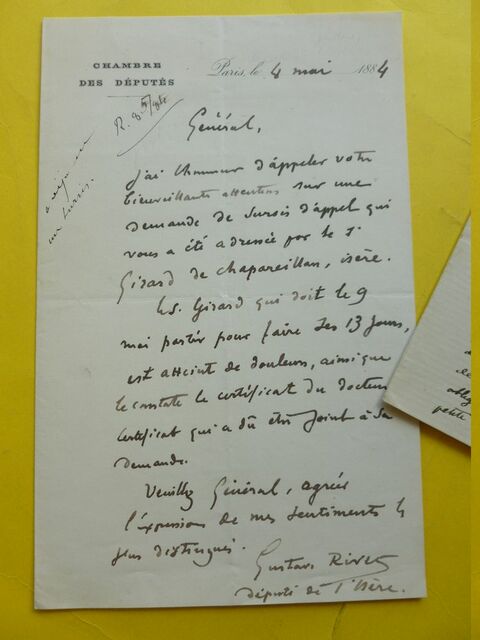 CHAMBRE
DES DÉPUTÉS
Paris, le 4 mai 1884
R. 8 5/84
a déjà eu
un sursis.
Général,
J'ai l'honneur d'appeler votre
bienveillante attention sur une
demande de sursis d'appel qui
vous a été adressée par le Sr
Girard de chapareillan, isère.
Le S. Girard qui doit le 9
mai partir pour faire ses 13 jours,
est atteint de douleurs, ainsi que
le constate le certificat du docteur
certificat qui a dû être joint à sa
demande.
Veuillez Général, agréer
l'expression de mes sentiments les
plus distingués.
Gustave Rivet
député de l'Isère.
petite